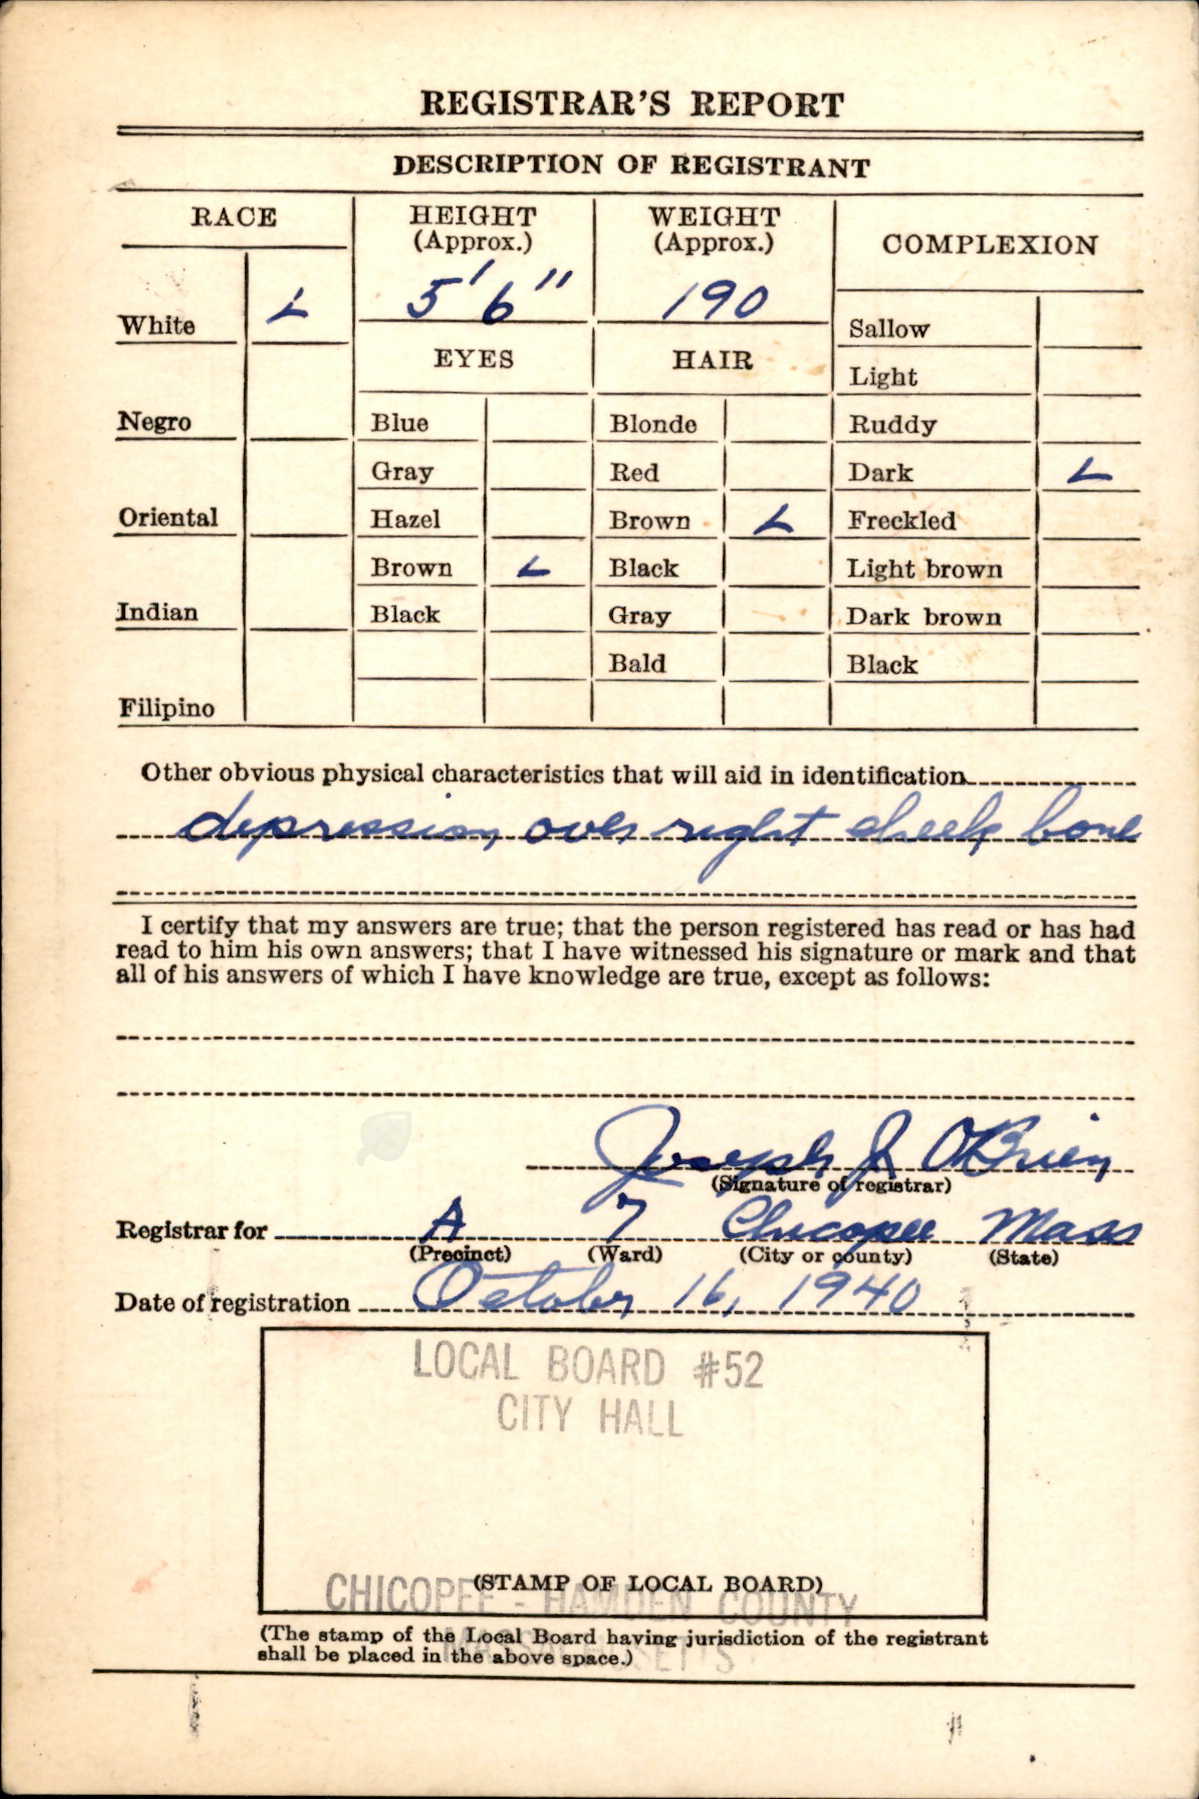 REGISTRAR'S REPORT
DESCRIPTION OF REGISTRANT
RACE
HEIGHT
(Approx.)
WEIGHT
(Approx.)
COMPLEXION
5' 6"
190
White
Sallow
EYES
HAIR
Light
Negro
Blue
Blonde
Ruddy
Gray
Red
Dark
Oriental
Hazel
Brown
Freckled
Brown
Black
Light brown
Indian
Black
Gray
Dark brown
Bald
Black
Filipino
Other obvious physical characteristics that will aid in identification
depression over right cheek bone
I certify that my answers are true; that the person registered has read or has had
read to him his own answers; that I have witnessed his signature or mark and that
all of his answers of which I have knowledge are true, except as follows:
Joseph J. O'Brien
(Signature of registrar)
Registrar for A 7 Chicopee Mass
(Precinct) (Ward) (City or county) (State)
Date of registration October 16, 1940
LOCAL BOARD #52
CITY HALL
(STAMP OF LOCAL BOARD)
CHICOPEE - HAMDEN COUNTY
(The stamp of the Local Board having jurisdiction of the registrant
MASSACHUSETTS
shall be placed in the above space.)